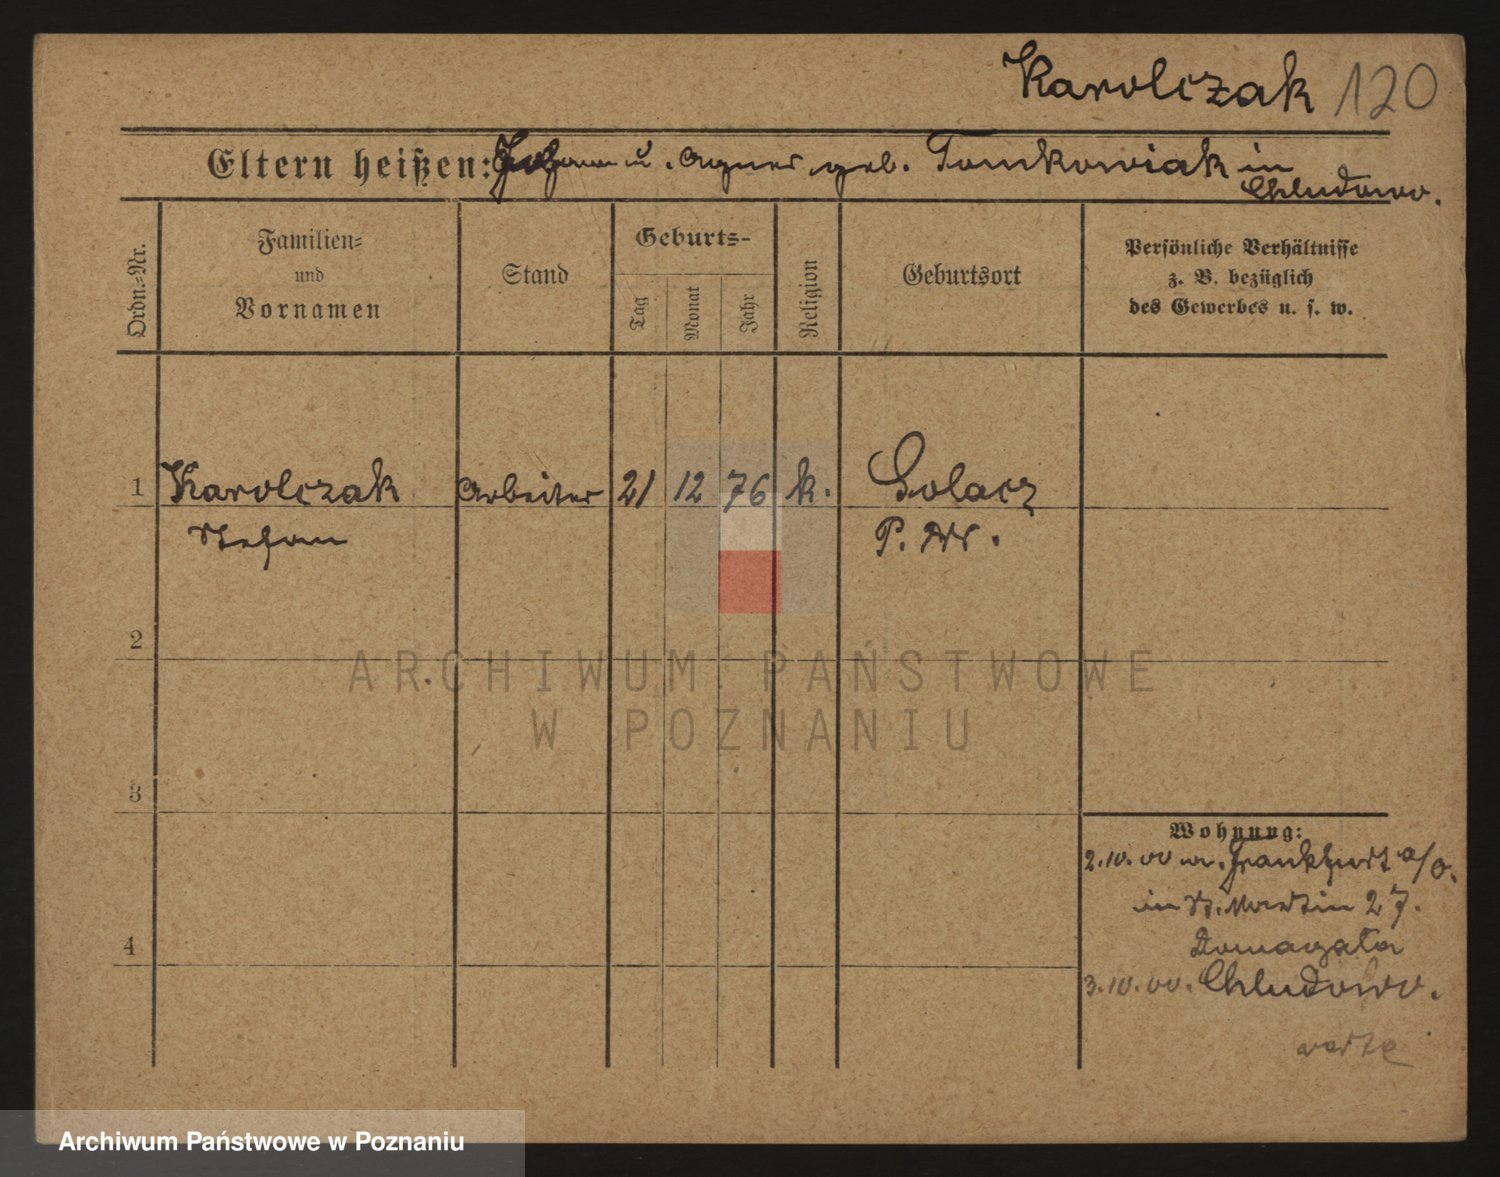 Karolczak 120
Eltern heißen: Johann u. Agnes geb. Tomkowiak in
Chludowo.
Ordn.-Nr.
Familien-
und
Vornamen
Stand
Geburts-
Tag
Monat
Jahr
Religion
Geburtsort
Persönliche Verhältnisse
z. B. bezüglich
des Gewerbes u. s. w.
1 Karolczak Arbeiter 21 12 76 k. Golacz
Stefan P. W.
2
ARCHIWUM PAŃSTWOWE
W POZNANIU
3
Wohnung:
2.10.00 v. Frankfurt a/O.
in St. Martin 27.
4
Domagala
3.10.00. Chludowo.
Archiwum Państwowe w Poznaniu